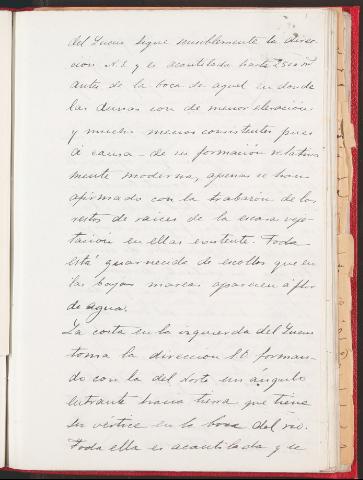 del Lucus sigue sensiblemente la direc-
cion N.E y es acantilada hasta 2500 m
antes de la boca de aquel en donde
las dunas son de menor elevación
y mucho menos consistentes pues
á causa de su formación relativa
mente moderna, apenas se han
afirmado con la trabazón de los
restos de raices de la escasa vege-
tación en ellas existente. Toda
está guarnecida de escollos que en
las bajas mareas aparecen á flor
de agua.
La costa en la izquierda del Lucus
toma la dirección S.O forman-
do con la del Norte un ángulo
entrante hacia tierra que tiene
su vértice en la boca del rio.
Toda ella es acantilada y se